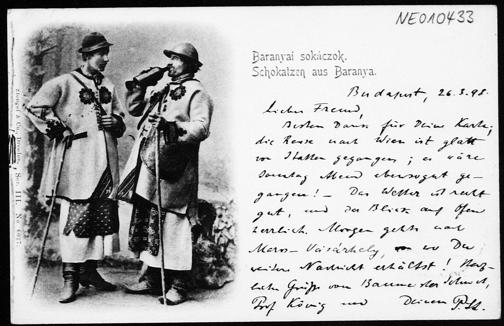 NE010433
Baranyai sokáczok.
Schokatzen aus Baranya.
Budapest, 26.3.98.
Lieber Freund,
Besten Dank für Deine Karte;
die Reise nach Wien ist glatt
von Statten gegangen; es wäre
gegangen! – Das Wetter ist recht
gut, und der Blick auf Ofen
herrlich. Morgen geht's nach
Maros-Vásárhely, wo Du
weitere Nachricht erhältst! Herz-
liche Grüße vom Baumeister
Prof König und Deinem
Ser. III. No